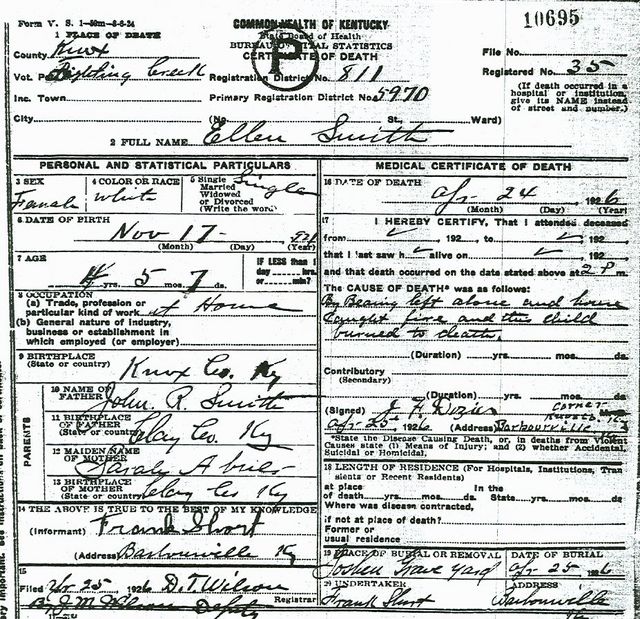 Form V. S. 1-50m-8-6-24
COMMONWEALTH OF KENTUCKY
10695
1 PLACE OF DEATH
State Board of Health
County Knox
BUREAU OF VITAL STATISTICS
File No.
CERTIFICATE OF DEATH
Vot. P Fighting Creek
Registration District No. 811
Registered No. 35
Inc. Town
Primary Registration District No. 5970
(If death occurred in a
hospital or institution,
give its NAME instead
of street and number.)
City (No. St., Ward)
2 FULL NAME Ellen Smith
PERSONAL AND STATISTICAL PARTICULARS
3 SEX
Female
4 COLOR OR RACE
White
5 Single
Married
Widowed
or Divorced
(Write the word)
Single
6 DATE OF BIRTH
Nov 17
(Month) (Day) (Year)
7 AGE
4 yrs. 5 mos. 7 ds.
IF LESS than 1
day hrs.
or min?
8 OCCUPATION
(a) Trade, profession or
particular kind of work at Home
(b) General nature of industry,
business or establishment in
which employed (or employer)
9 BIRTHPLACE
(State or country) Knox Co. Ky
PARENTS
10 NAME OF
FATHER John. R. Smith
11 BIRTHPLACE
OF FATHER
(State or country) Clay Co. Ky
12 MAIDEN NAME
OF MOTHER Sarah A
13 BIRTHPLACE
OF MOTHER
(State or country) Clay Co Ky
14 THE ABOVE IS TRUE TO THE BEST OF MY KNOWLEDGE
(Informant) Frank Short
(Address) Barbourville Ky
15
Filed Apr 25 1926 D. T. Wilson
Registrar
By J. M. Wilson Deputy
MEDICAL CERTIFICATE OF DEATH
16 DATE OF DEATH
Apr 24, 1926
(Month) (Day) (Year)
17 I HEREBY CERTIFY, That I attended deceased
from , 192 , to , 192
that I last saw h alive on , 192
and that death occurred on the date stated above at 2 P m.
The CAUSE OF DEATH* was as follows:
By Beaing left alone and house
Caught fire and this child
burned to death.
(Duration) yrs. mos. ds.
Contributory
(Secondary)
(Duration) yrs. mos. ds.
(Signed) J. H. Corner
Apr 25 1926 (Address) Barbourville
*State the Disease Causing Death, or, in deaths from Violent
Causes state (1) Means of Injury; and (2) whether Accidental,
Suicidal or Homicidal.
18 LENGTH OF RESIDENCE (For Hospitals, Institutions, Tran
sients or Recent Residents)
at place In the
of death yrs. mos. ds. State yrs. mos. ds.
Where was disease contracted,
if not at place of death?
Former or
usual residence
19 PLACE OF BURIAL OR REMOVAL
Goshen Grave yard
DATE OF BURIAL
Apr 25 1926
20 UNDERTAKER
Frank Short
ADDRESS
Barbourville